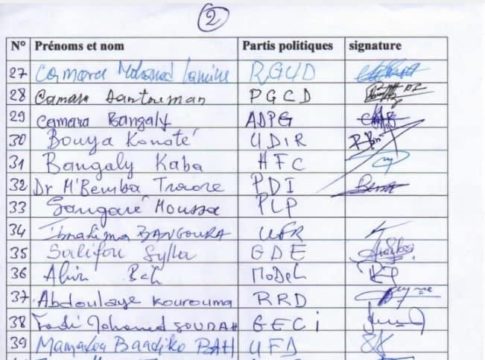 2
N° Prénoms et nom Partis politiques signature
27 Camara Mohamed Lamine RGUD
28 Camara PGCD
29 Camara Bangaly ADPG
30 Bouya Konaté UDIR
31 Bangaly Kaba HFC
32 Dr M'Bemba Traore PDI
33 Sangaré Moussa PLP
34 Ibrahima BANGOURA UFR
35 Salifou Sylla GDE
36 Bah MoDeL
37 Abdoulaye Kourouma RRD
38 Mohamed SOUMAH GECi
39 Mamadou BAH UFD